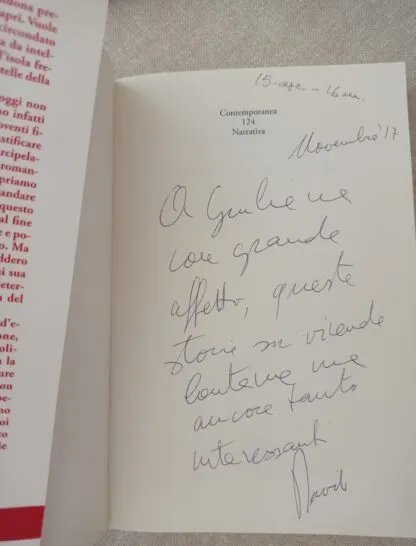 ndona pre-
apri. Vuole
circondato
a da intel-
l'isola fre-
telle della
oggi non
no infatti
oventi fi-
stificare
rcipela-
roman-
priamo
andare
questo
al fine
e e po-
o. Ma
ddero
ni sua
eter-
a del
d'e-
one,
oli-
n la
ure
on
pe-
no
oi
to
ie
15-
- 16
Contemporanea
124
Narrativa
Novembre '17
A Giuliana
con grande
affetto, queste
storie su vicende
lontane ma
ancora tanto
interessanti
David